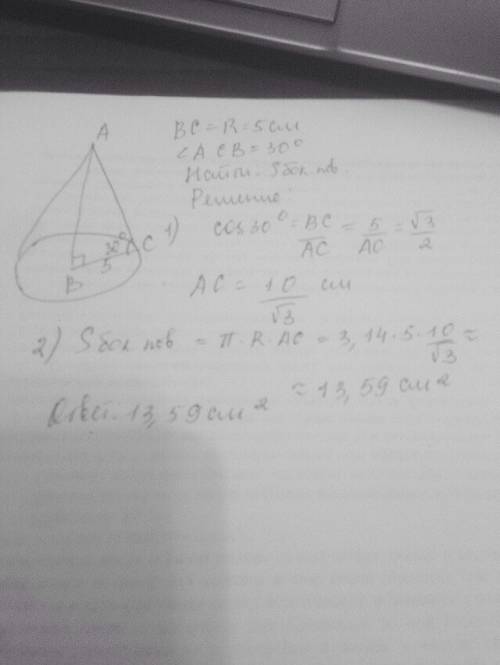 A
BC = R = 5 см
∠ACB = 30°
Найти: Sбок пов.
Решение:
30° C
B 5
1) cos 30° = BC/AC = 5/AC = √3/2
AC = 10/√3 см
2) Sбок пов = π·R·AC = 3,14·5·10/√3 ≈
≈ 13,59 см²
Ответ: 13,59 см²